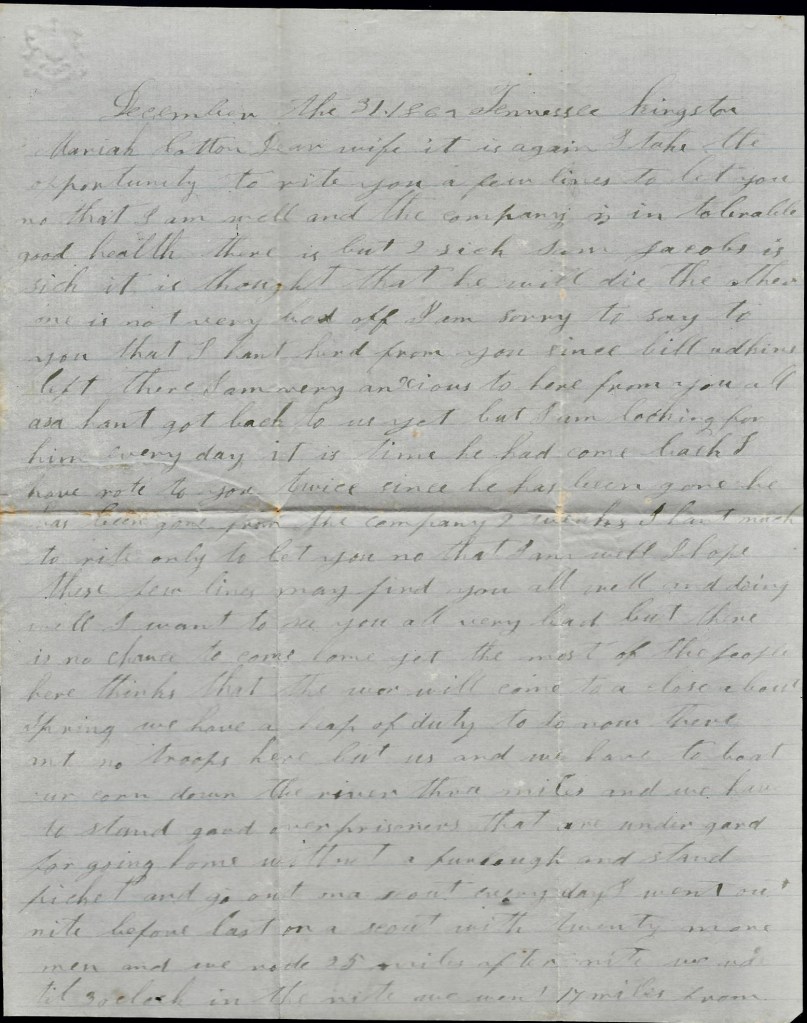 December the 31 1862 Tennessee Kingston
Mariah Cotton Dear wife it is again I take the
opportunity to rite you a few lines to let you
no that I am well and the company is in tolerable
good health there is but 2 sick Sam Jacobs is
sick it is thought that he will die the other
one is not very bad off I am sorry to say to
you that I hant herd from you since bill adkins
left there I am very anxious to here from you all
asa hant got back to us yet but I am looking for
him every day it is time he had come back I
have rote to you twice since he has been gone he
has been gone from the company 2 weeks I hant much
to rite only to let you no that I am well I hope
these few lines may find you all well and doing
well I want to see you all very bad but there
is no chance to come home yet the most of the people
here thinks that the war will come to a close about
spring we have a heap of duty to do now there
ant no troops here but us and we have to boat
our corn down the river three miles and we have
to stand gard over prisoners that are under gard
for going home without a furlough and stand
picket and go out on a scout every day I went out
nite before last on a scout with twenty more
men and we rode 25 miles after nite we rode
til 3 oclock in the nite we went 17 miles from